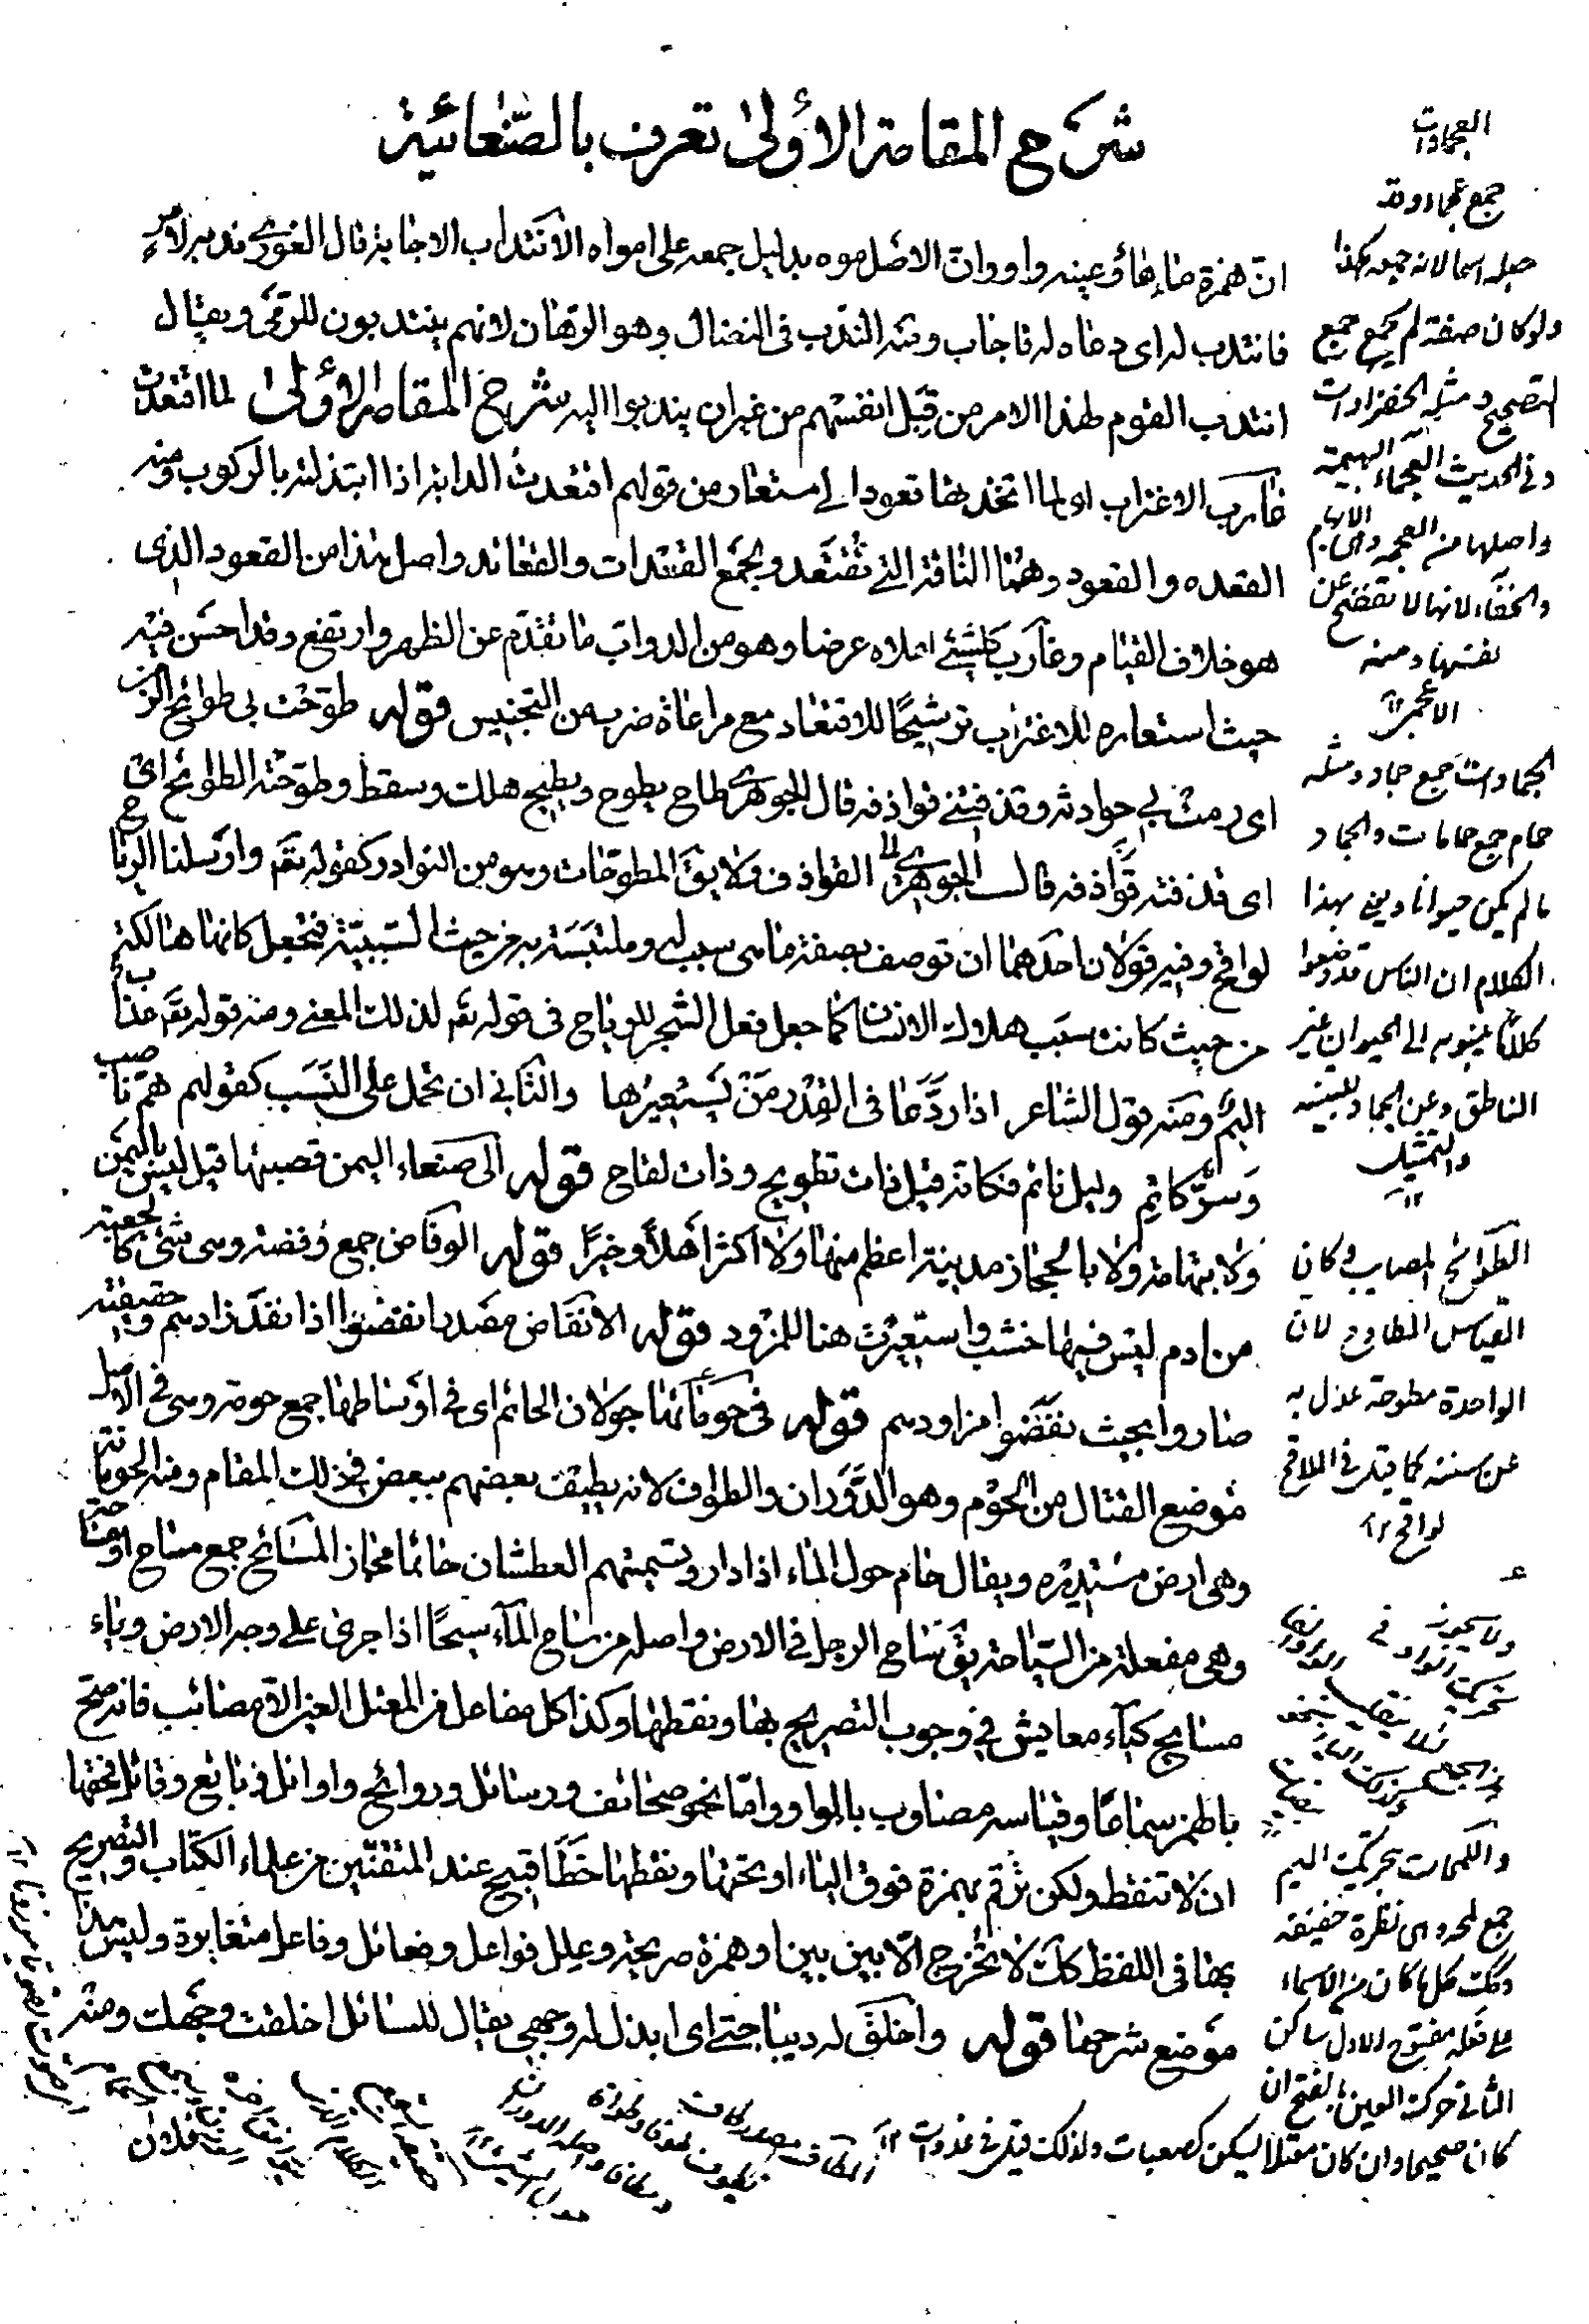 شرح المقامة الأولى تعرف بالصّنعائية
انّ همزة ماء هاؤ وعينه واو وان الاصل موه بدليل جمعه على امواه الانتداب الاجابة قال الغورى ندبه لامر
فانتدب له اى دعاه له فاجاب ومنه الندب فى النضال وهو الرهان لانهم ينتدبون للرمى ويقال
انتدب القوم لهذا الامر من قبل انفسهم من غير ان يندبوا اليه شرح المقامة الأولى لما اقتعدت
غارب الاغتراب اى لما اتخذ لها قعودا لى مستعار من قولهم اقتعدت الدابة اذا ابتذلته بالركوب ومنه
القعده والقعود وهما الناقة التى تقتعد ويجمع القعدات والقعائد واصل هذا من القعود الذى
هو خلاف القيام وغارب كل شئ اعلاه عرضا وهو من الدواب ما تقدم عن الظهر وارتفع وقد احسن فيه
حيث استعاره للاغتراب ترشيحًا للاقتعاد مع مراعاة ضرب من التجنيس قوله طوّحت بى طوائح الزمن
اى رمت بى حوادثه وقذفتنى قواذفه قال الجوهرى طاح يطوح ويطيح هلك وسقط وطوّحته الطوائح اى
اى قذفته قواذفه قال الجوهرى القواذف ولا يقَ المطوّحات وهو من النوادر كقوله تعَ وارسلنا الرياح
لواقح وفيه قولان احدهما ان توصف بصفة ما هى سبب له وملتبسة به من حيث السببيّة فتجعل كانها هالكة
من حيث كانت سبب هلاك الانسان كما جعل فعل الشجر للرياح فى قوله تعَ لذلك المعنى ومنه قوله تعَ عذاب
اليم ومنه قول الشاعر اذا ردَّ عافى القِدْر مَنْ يَسْتَعِيرُها والثانى ان تحمل على النَّسَب كقولهم همّ ناصب
وسرّ كاتم وليل نائم فكانه قيل ذات تطويح وذات لقاح قوله الى صنعاء اليمن قصبتها قيل ليس باليمن
ولا بتهامة ولا بالحجاز مدينة اعظم منها ولا اكثر اهلاً وخيرًا قوله الوفاض جمع وفضة وهى شئ كالجعبة
من ادم ليس فيها خشب واستعيرت هنا للمزود قوله الانفاض مصدر انفضوا اذا نفد زادهم وحقيقته
صاروا بحيث نفضوا مزاودهم قوله فى حوماتها جولان الحائم اى فى اوساطها جمع حومة وهى فى الاصل
موضع القتال من الحوم وهو الدَّوَران والطواف لانه يطيف بعضهم ببعض فى ذلك المقام ومنه الحومانة
وهى ارض مستديره ويقال حام حول الماء اذا دار وتسميتهم العطشان حائما مجاز المسائح جمع مساح او مساحة
وهى مفعلة من السياحة يقَ ساح الرجل فى الارض واصله من ساح الماء سيحًا اذا جرى على وجه الارض وياء
مسايح كياء معايش فى وجوب التصريح بها ونقطها وكذا كل مفاعل من المعتل العين الا مصائب فانه صح
بالهمز سماعًا وقياسه مصاوب بالواو وامّا نحو صحائف ورسائل وروائح واوائل وبائع وقائل فحقها
ان لا تنقط ولكن ترقم بهمزة فوق الياء او تحتها ونقطها خطأ قبيح عند المتقنين من علماء الكتاب والتصريح
بها فى اللفظ كك لا تخرج الا بين بين او همزة صريحة وعلل فواعل وفعائل وفاعل متغايرة وليس هذا
موضع شرحها قوله واخلق له ديباجتى اى ابذل له وجهى يقال للسائل اخلقت وجهك ومنه
فلان
العجماوات
جمع عجماء وقد
جعله اسما لانه جمعه هكذا
ولو كان صفة لم يجمع جمع
التصحيح ومثله الخضراوات
وفى الحديث العجماء البهيمة
واصلها من العجمة وهى الابهام
والخفاء لانها لا تفصح عن
نفسها ومنه
الاعجم ١٢
الجمادات جمع جماد ومثله
حمام جمع حمامات والجماد
ما لم يكن حيوانا ويعنى بهذا
الكلام ان الناس قد وضعوا
كلامًا ينسبونه الى الحيوان غير
الناطق وعن الجماد للبينه
والتمثيل
١٢
الطوائح المصايب وكان
القياس المطاوح لان
الواحدة مطوحة عدل به
عن سننه كما قيل فى الملاقح
لواقح ١٢
واللمحات بتحريك الميم
جمع لمحة وهى نظرة خفيفة
وكك كل ما كان من الاسماء
على فعلة مفتوح الاول ساكن
الثانى حركت العين بالفتح ان
كان صحيحا وان كان معتلا ليسكن كصعبات ولذلك قيل فى غدوات ١٢